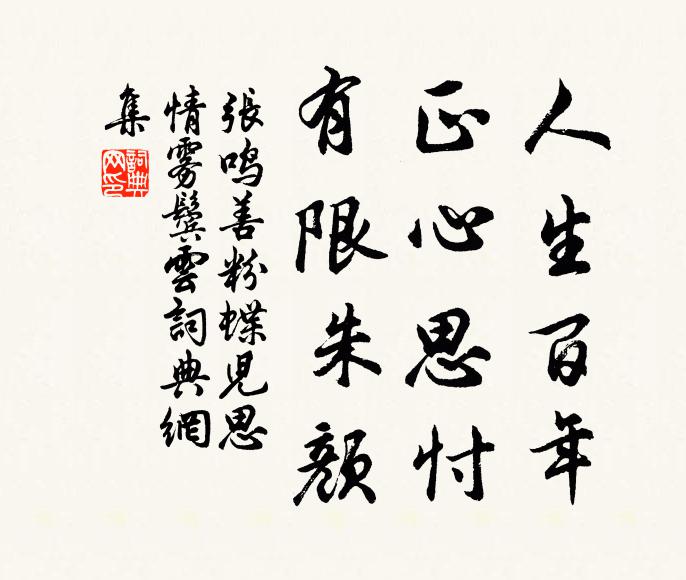 人生百年
正心思忖
有限朱颜
張鸣善粉蝶児思
情雾鬓雲詞典網
集
詞典
网印